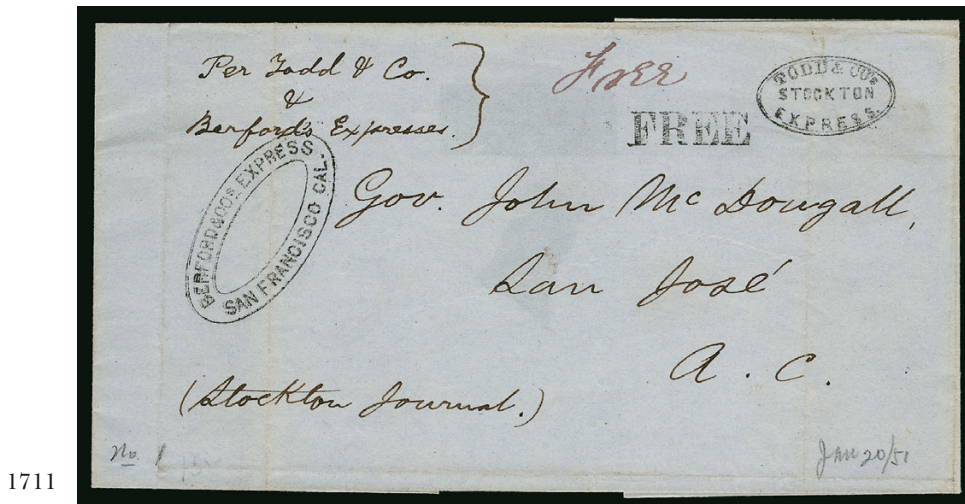 Per Todd & Co.
&
Berford's Expresses.
Free
FREE
TODD & COs
STOCKTON
EXPRESS
BERFORD & COs EXPRESS
SAN FRANCISCO CAL.
Gov. John McDougall,
San José
A. C.
(Stockton Journal.)
No. 1
JAN 20/51
1711